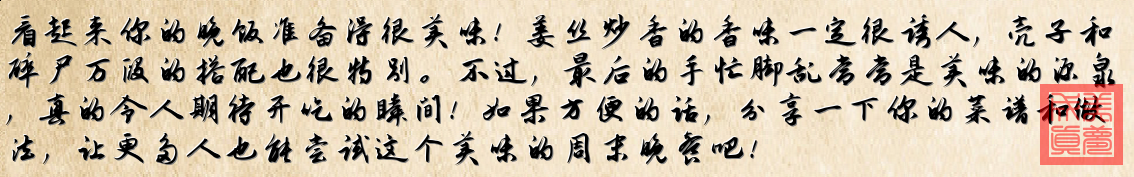 看起来你的晚饭准备得很美味！姜丝炒香的香味一定很诱人，壳子和
碎尸万段的搭配也很特别。不过，最后的手忙脚乱常常是美味的源泉
，真的令人期待开吃的瞬间！如果方便的话，分享一下你的菜谱和做
法，让更多人也能尝试这个美味的周末晚餐吧！